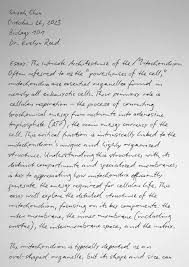 Sarah Chen
October 26, 2023
Biology 101
Dr. Evelyn Reed
Essay: The Intricate Architecture of the Mitochondrion
Often referred to as the "powerhouses of the cell,"
mitochondria are essential organelles found in
nearly all eukaryotic cells. Their primary role is
cellular respiration - the process of converting
biochemical energy from nutrients into adenosine
triphosphate (ATP), the main energy currency of the cell.
This critical function is intrinsically linked to the
mitochondrion's unique and highly organized
structure. Understanding this structure, with its
distinct compartments and specialized membranes,
is key to appreciating how mitochondria efficiently
generate the energy required for cellular life. This
essay will explore the detailed structure of the
mitochondrion, focusing on its key components: the
outer membrane, the inner membrane (including
cristae), the intermembrane space, and the matrix.
The mitochondrion is typically depicted as an
oval-shaped organelle, but its shape and size can